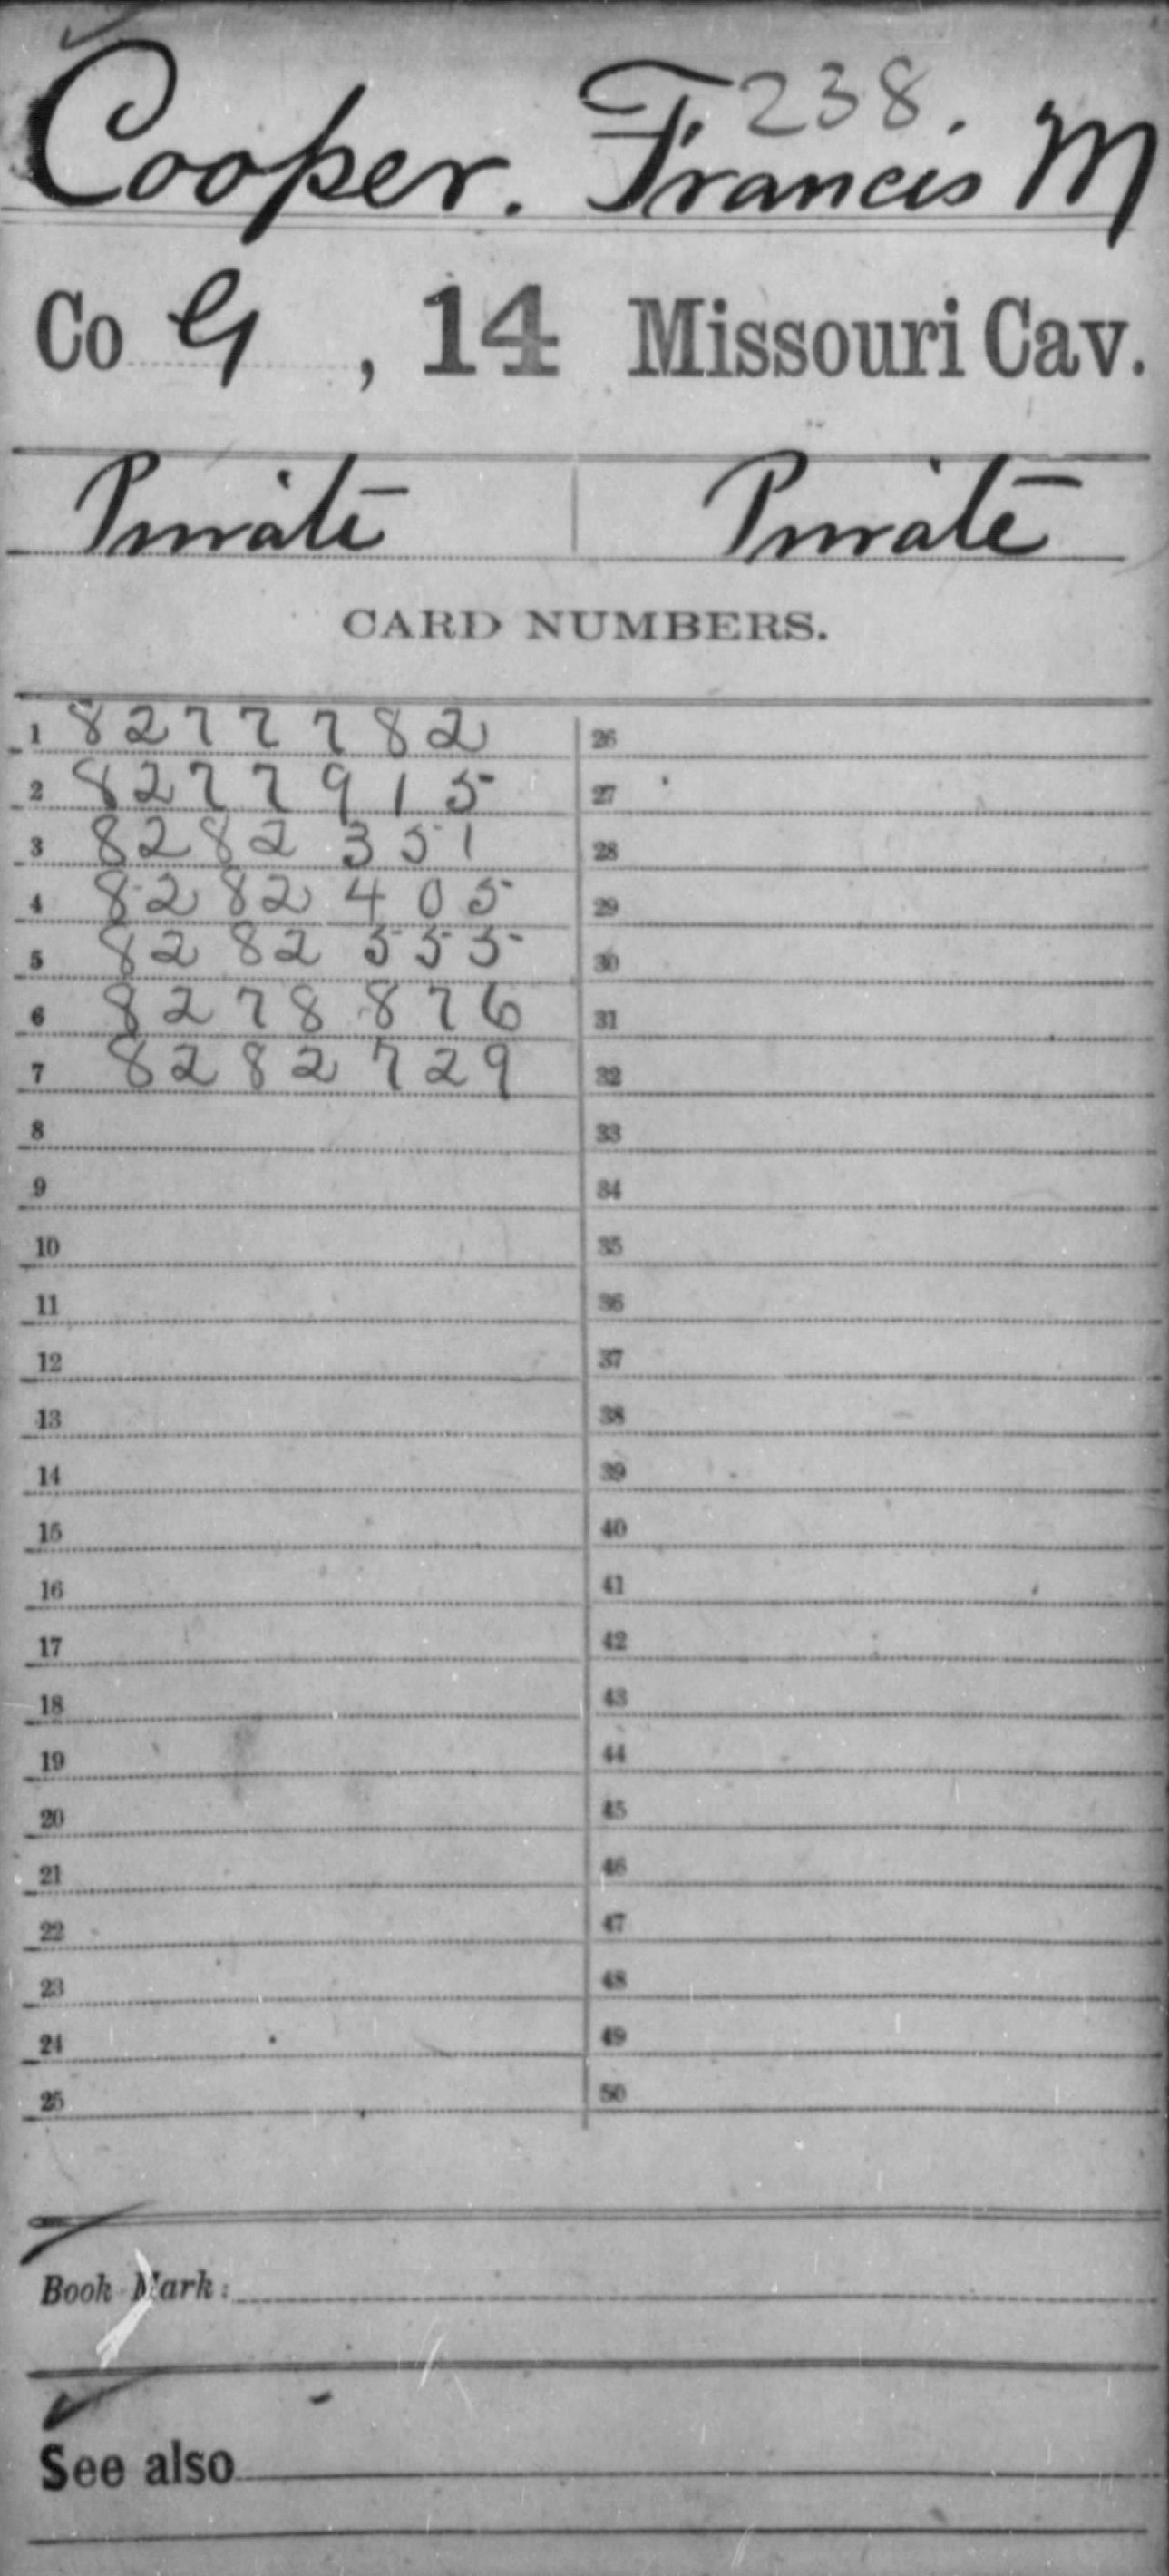 238.
Cooper. Francis M
Co G, 14 Missouri Cav.
Private Private
CARD NUMBERS.
1 8277782 26
2 8277915 27
3 8282351 28
4 8282405 29
5 8282555 30
6 8278876 31
7 8282729 32
8 33
9 34
10 35
11 36
12 37
13 38
14 39
15 40
16 41
17 42
18 43
19 44
20 45
21 46
22 47
23 48
24 49
25 50
Book Mark:
See also